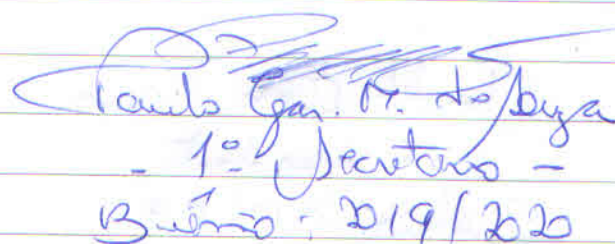 Paulo Cgar. M. de Souza
- 1º Secretario -
Biênio: 2019/2020